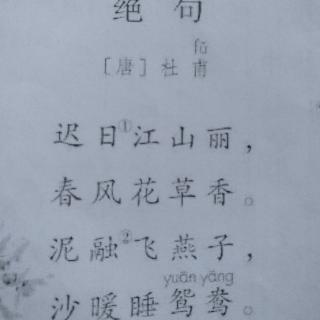 绝句
fǔ
[唐] 杜甫
迟日①江山丽，
春风花草香。
泥融②飞燕子，
yuān yāng
沙暖睡鸳鸯。